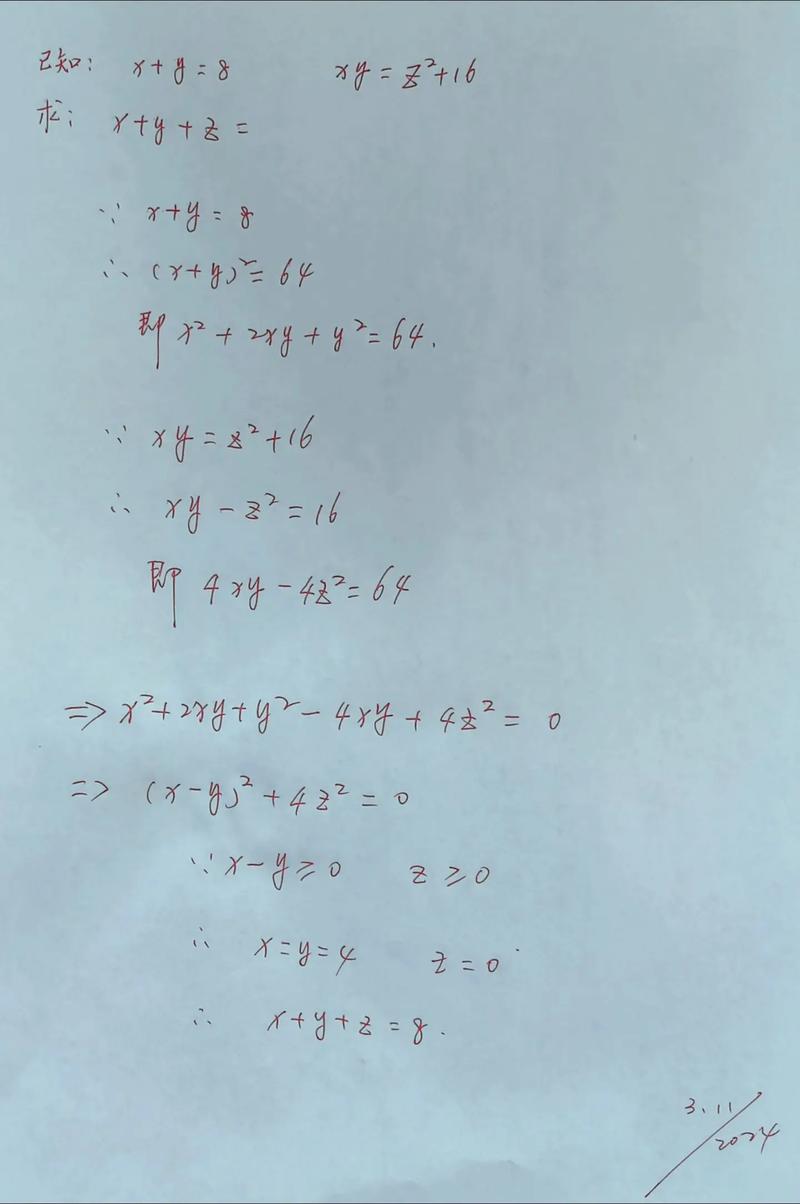 已知: x+y=8 xy=z²+16
求: x+y+z=
∵ x+y=8
∴ (x+y)²=64
即 x²+2xy+y²=64.
∵ xy=z²+16
∴ xy-z²=16
即 4xy-4z²=64
⇒ x²+2xy+y²-4xy+4z²=0
⇒ (x-y)²+4z²=0
∵ x-y≥0 z≥0
∴ x=y=4 z=0
∴ x+y+z=8.
3.11/2024